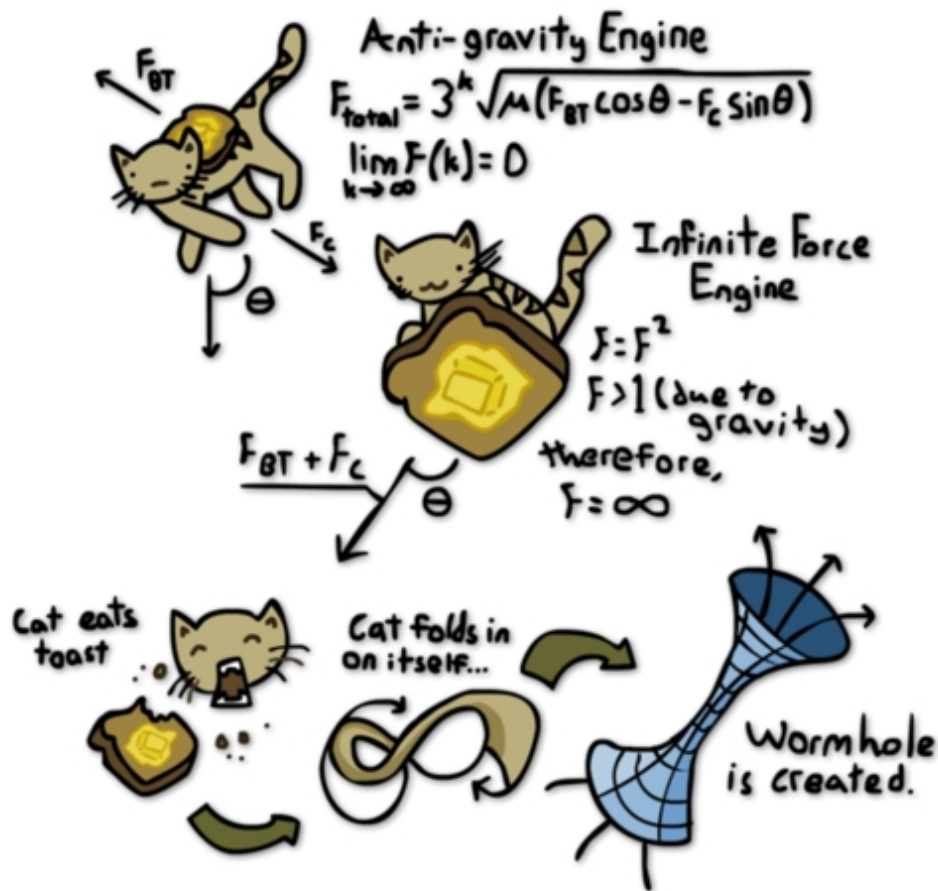 Anti-gravity Engine
F_BT
F_total = 3^k √μ(F_BT cosθ - F_c sinθ)
lim k→∞ F(k) = 0
F_c
θ
Infinite Force
Engine
F=F²
F>1 (due to
gravity)
therefore,
F=∞
F_BT + F_c
θ
Cat eats
toast
Cat folds in
on itself...
Wormhole
is created.